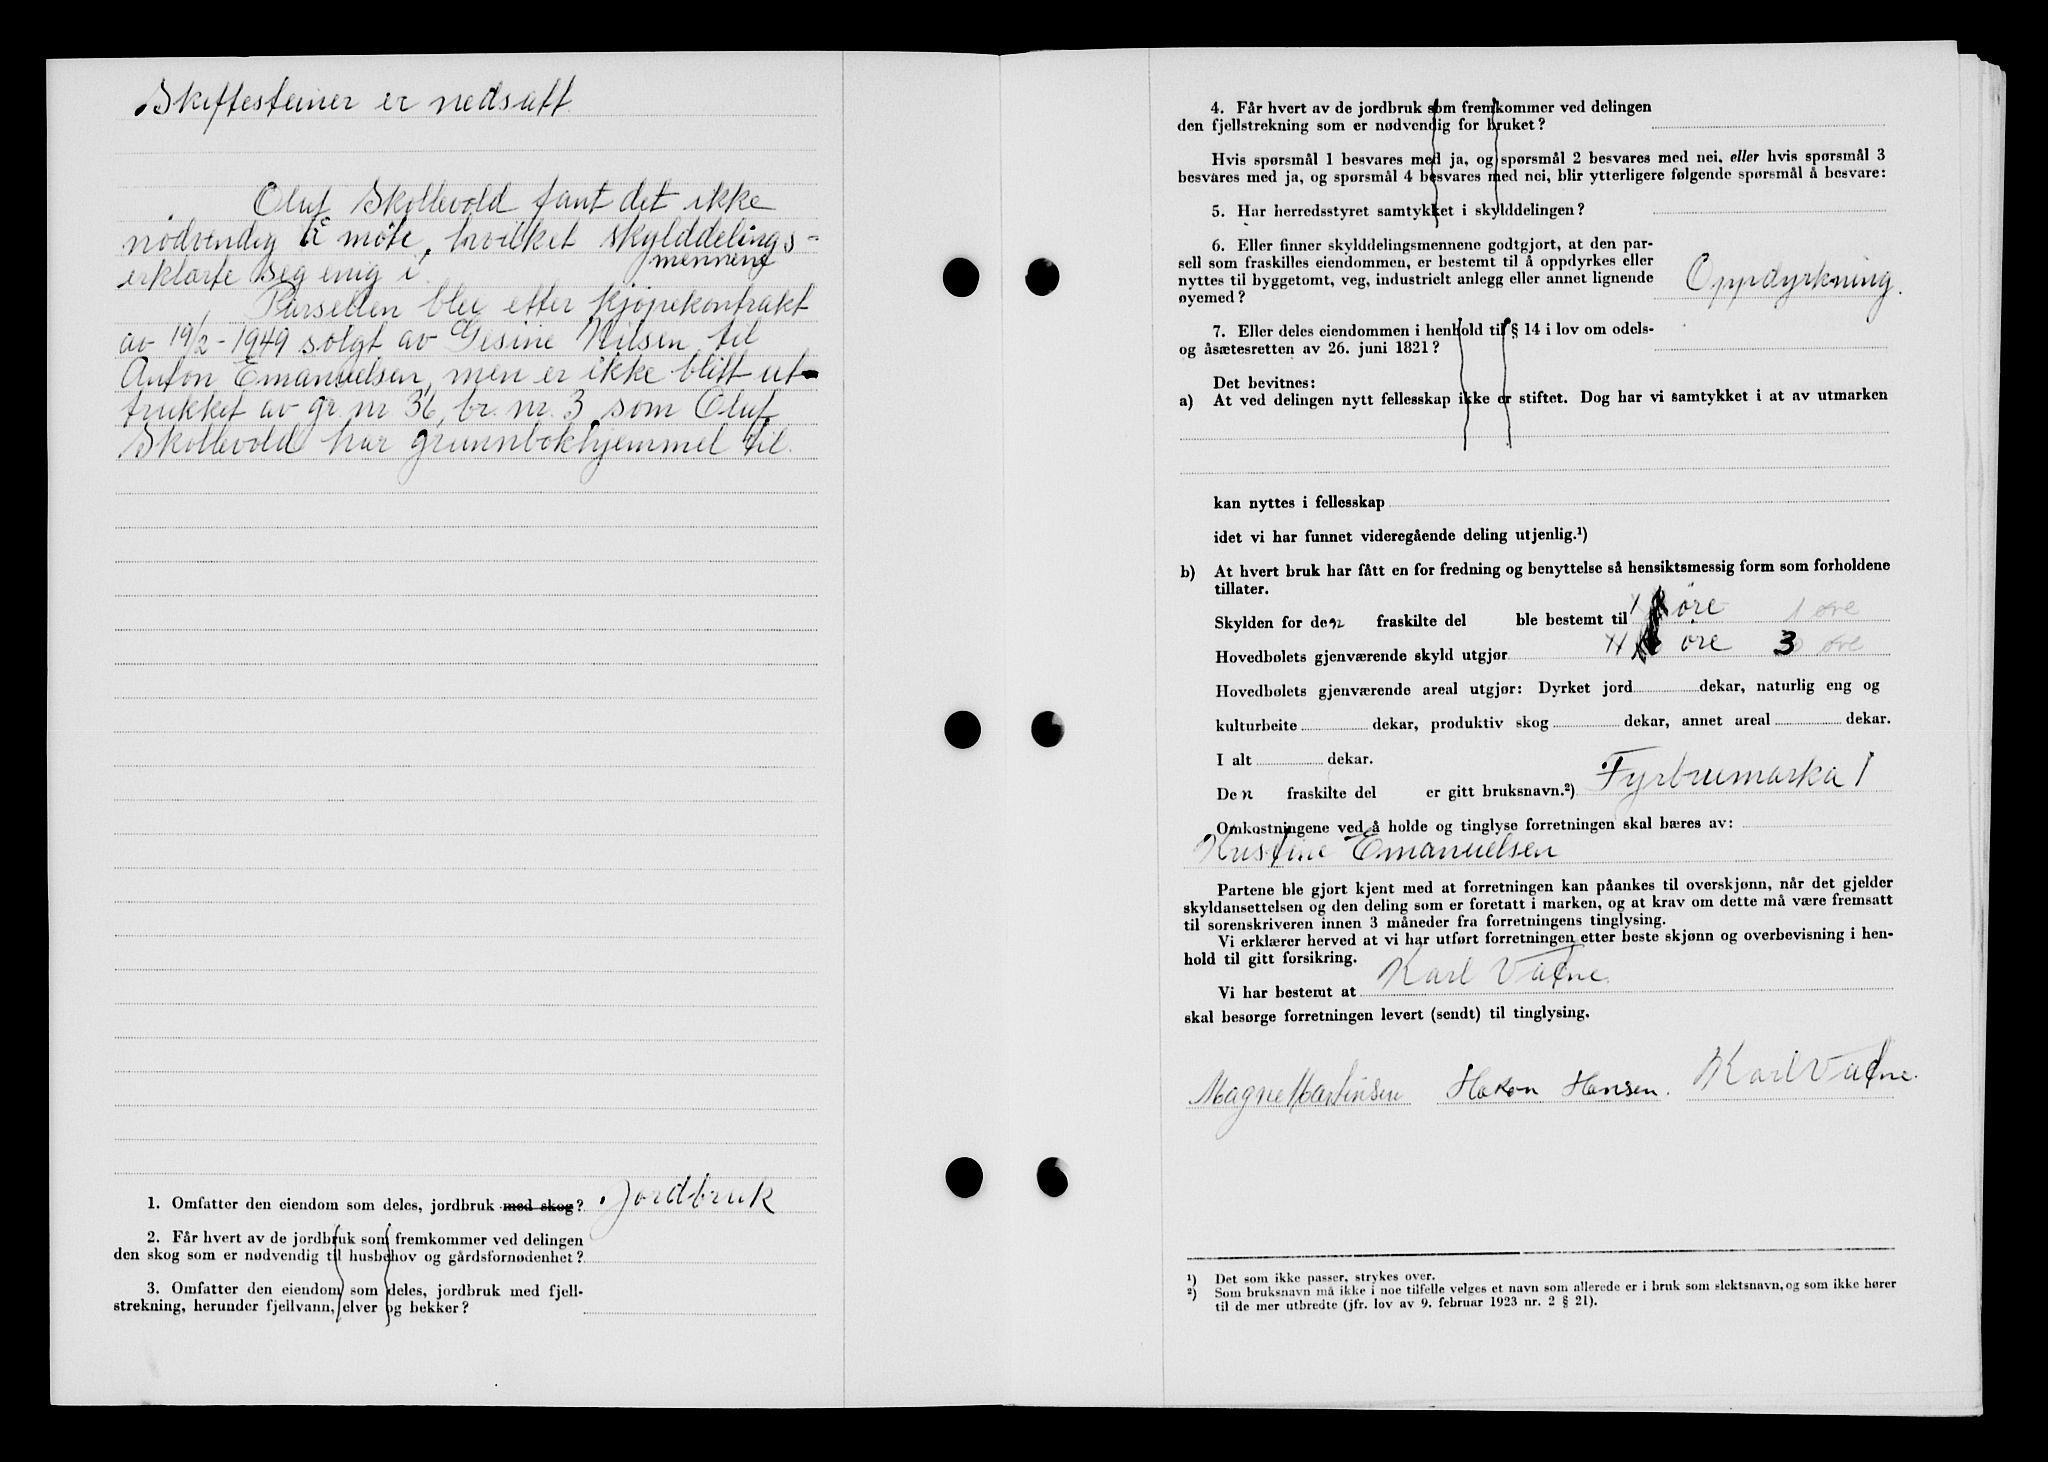 Skiftesteiner er nedsatt.
Oluf Skollevold fant det ikke
nødvendig å møte, hvilket skylddelings-
mennene
erklærte seg enig i.
Parsellen ble etter kjøpekontrakt
av 19/2-1949 solgt av Gesine Nilsen til
Anton Emanuelsen, men er ikke blitt ut-
trukket av gr. nr 36, br. nr. 3 som Oluf
Skollevold har grunnbokhjemmel til.
1. Omfatter den eiendom som deles, jordbruk med skog? Jordbruk
2. Får hvert av de jordbruk som fremkommer ved delingen
den skog som er nødvendig til husbehov og gårdsfornødenhet?
3. Omfatter den eiendom som deles, jordbruk med fjell-
strekning, herunder fjellvann, elver og bekker?
4. Får hvert av de jordbruk som fremkommer ved delingen
den fjellstrekning som er nødvendig for bruket?
Hvis spørsmål 1 besvares med ja, og spørsmål 2 besvares med nei, eller hvis spørsmål 3
besvares med ja, og spørsmål 4 besvares med nei, blir ytterligere følgende spørsmål å besvare:
5. Har herredsstyret samtykket i skylddelingen?
6. Eller finner skylddelingsmennene godtgjort, at den par-
sell som fraskilles eiendommen, er bestemt til å oppdyrkes eller
nyttes til byggetomt, veg, industrielt anlegg eller annet lignende
øyemed? Oppdyrkning.
7. Eller deles eiendommen i henhold til § 14 i lov om odels-
og åsætesretten av 26. juni 1821?
Det bevitnes:
a) At ved delingen nytt fellesskap ikke er stiftet. Dog har vi samtykket i at av utmarken
kan nyttes i fellesskap
idet vi har funnet videregående deling utjenlig.¹)
b) At hvert bruk har fått en for fredning og benyttelse så hensiktsmessig form som forholdene
tillater.
Skylden for den fraskilte del ble bestemt til øre 1 øre
Hovedbølets gjenværende skyld utgjør øre 3 øre
Hovedbølets gjenværende areal utgjør: Dyrket jord dekar, naturlig eng og
kulturbeite dekar, produktiv skog dekar, annet areal dekar.
I alt dekar.
Den fraskilte del er gitt bruksnavn.²) Fyrbuemarka 1
Omkostningene ved å holde og tinglyse forretningen skal bæres av:
Kristine Emanuelsen
Partene ble gjort kjent med at forretningen kan påankes til overskjønn, når det gjelder
skyldansettelsen og den deling som er foretatt i marken, og at krav om dette må være fremsatt
til sorenskriveren innen 3 måneder fra forretningens tinglysing.
Vi erklærer herved at vi har utført forretningen etter beste skjønn og overbevisning i hen-
hold til gitt forsikring.
Vi har bestemt at Karl Vatne
skal besørge forretningen levert (sendt) til tinglysing.
Magne Martinsen Hakon Hansen. Karl Vatne.
¹) Det som ikke passer, strykes over.
²) Som bruksnavn må ikke i noe tilfelle velges et navn som allerede er i bruk som slektsnavn, og som ikke hører
til de mer utbredte (jfr. lov av 9. februar 1923 nr. 2 § 21).